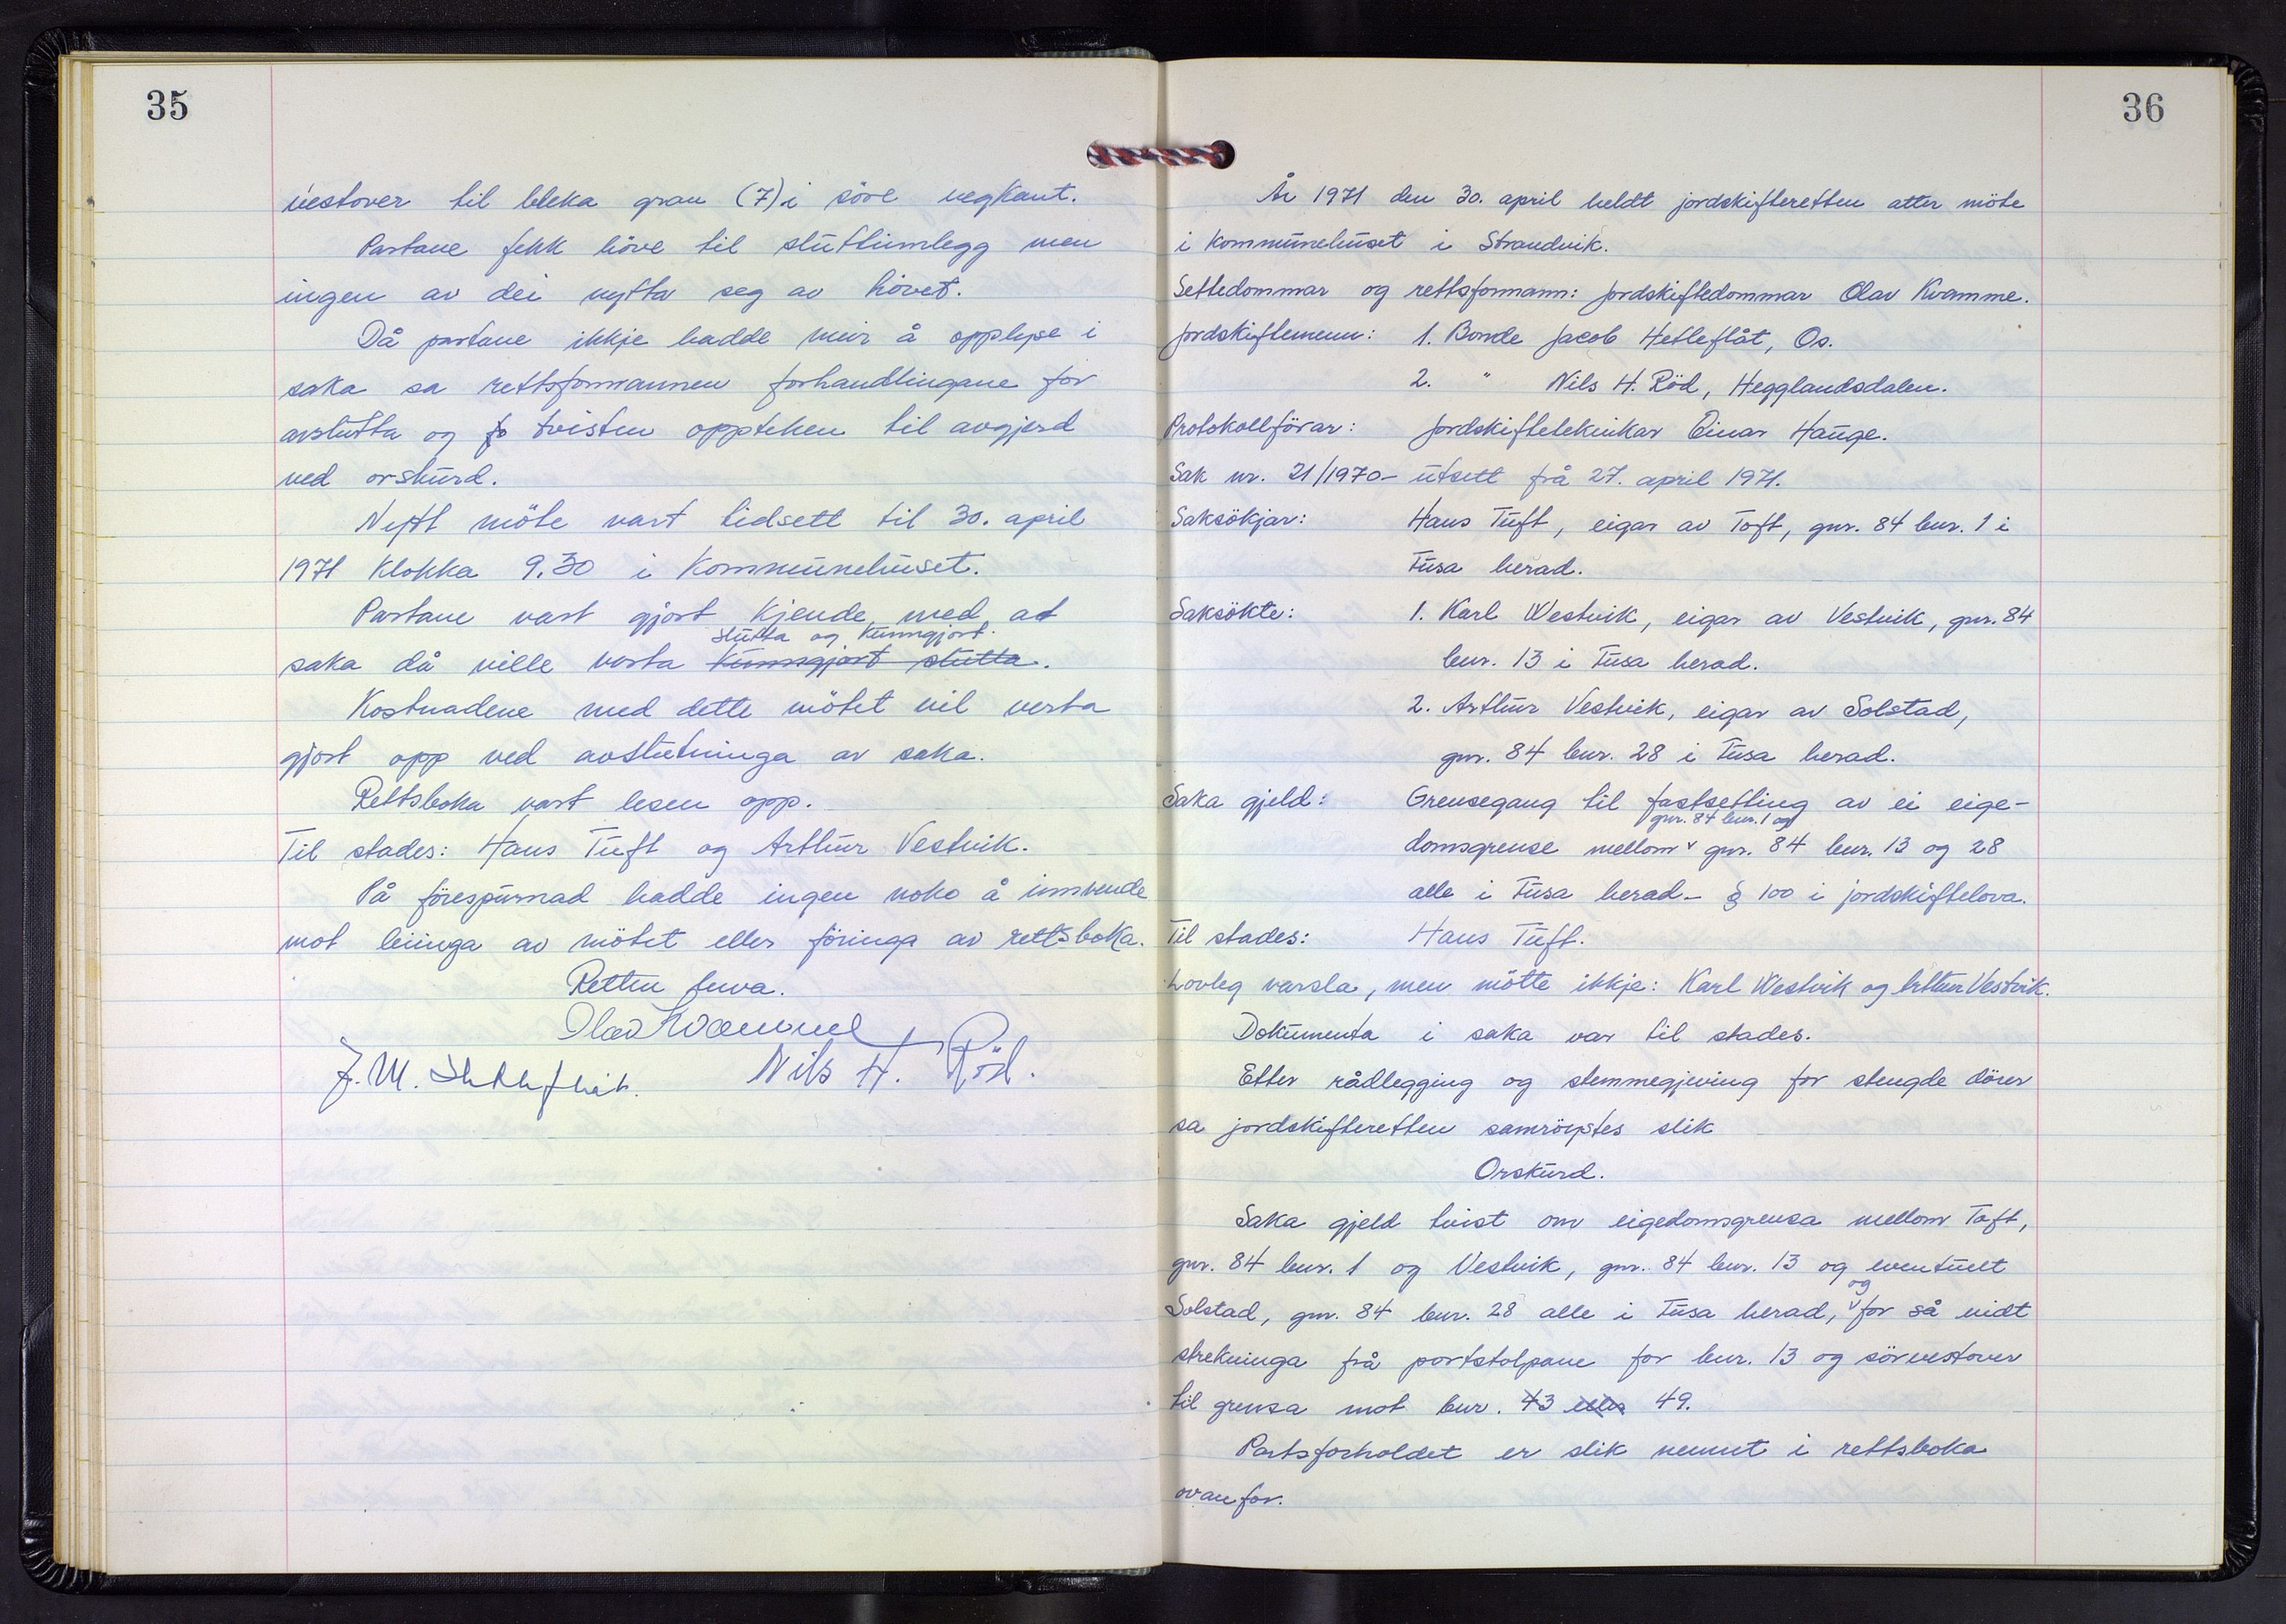 35
vestover til bleka gran (7) i söre vegkant.
Partane fekk höve til sluttinnlegg men
ingen av dei nytta seg av hövet.
Då partane ikkje hadde meir å opplyse i
saka sa rettsformannen forhandlingane for
avslutta og fo tvisten oppteken til avgjerd
ved orskurd.
Neste möte vart tidsett til 30. april
1971 klokka 9.30 i Kommunehuset.
Partane vart gjort kjende med at
slutta og kunngjort.
saka då ville verta kunngjort slutta.
Kostnadene med dette mötet vil verta
gjort opp ved avslutninga av saka.
Rettsboka vart lesen opp.
Til stades: Hans Tuft og Arthur Vestvik.
På förespurnad hadde ingen noko å innvende
mot leiinga av mötet eller föringa av rettsboka.
Retten heva.
Olav Kvamme
J. M. Hetleflåt. Nils H. Röd.
36
År 1971 den 30. april heldt jordskifteretten atter möte
i kommunehuset i Strandvik.
Settedommar og rettsformann: Jordskiftedommar Olav Kvamme.
Jordskiftemenn: 1. Bonde Jacob Hetleflåt, Os.
2. " Nils H. Röd, Hegglandsdalen.
Protokollförar: Jordskifteteknikar Einar Hauge.
Sak nr. 21/1970 - utsett frå 27. april 1971.
Saksökjar: Hans Tuft, eigar av Toft, gnr. 84 bnr. 1 i
Fusa herad.
Saksökte: 1. Karl Westvik, eigar av Vestvik, gnr. 84
bnr. 13 i Fusa herad.
2. Arthur Vestvik, eigar av Solstad,
gnr. 84 bnr. 28 i Fusa herad.
Saka gjeld: Grensegang til fastsetting av ei eige-
gnr. 84 bnr. 1 og
domsgrense mellom gnr. 84 bnr. 13 og 28
alle i Fusa herad - § 100 i jordskiftelova.
Til stades: Hans Tuft.
Lovleg varsla, men mötte ikkje: Karl Westvik og Arthur Vestvik.
Dokumenta i saka var til stades.
Etter rådlegging og stemmegjeving for stengde dörer
sa jordskifteretten samröystes slik
Orskurd.
Saka gjeld tvist om eigedomsgrensa mellom Toft,
gnr. 84 bnr. 1 og Vestvik, gnr. 84 bnr. 13 og eventuelt
og
Solstad, gnr. 84 bnr. 28 alle i Fusa herad, for så vidt
strekninga frå portstolpane for bnr. 13 og sörvestover
til grensa mot bnr. 43 eller 49.
Partsforholdet er slik nemnt i rettsboka
ovanfor.